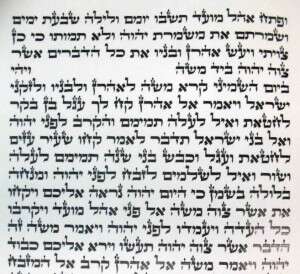 ופתח אהל מועד תשבו יומם ולילה שבעת ימים
ושמרתם את משמרת יהוה ולא תמותו כי כן
צויתי ויעש אהרן ובניו את כל הדברים אשר
צוה יהוה ביד משה ויהי
ביום השמיני קרא משה לאהרן ולבניו ולזקני
ישראל ויאמר אל אהרן קח לך עגל בן בקר
לחטאת ואיל לעלה תמימם והקרב לפני יהוה
ואל בני ישראל תדבר לאמר קחו שעיר עזים
לחטאת ועגל וכבש בני שנה תמימם לעלה
ושור ואיל לשלמים לזבח לפני יהוה ומנחה
בלולה בשמן כי היום יהוה נראה אליכם ויקחו
את אשר צוה משה אל פני אהל מועד ויקרבו
כל העדה ויעמדו לפני יהוה ויאמר משה זה
הדבר אשר צוה יהוה תעשו וירא אליכם כבוד
יהוה ויאמר משה אל אהרן קרב אל המזבח